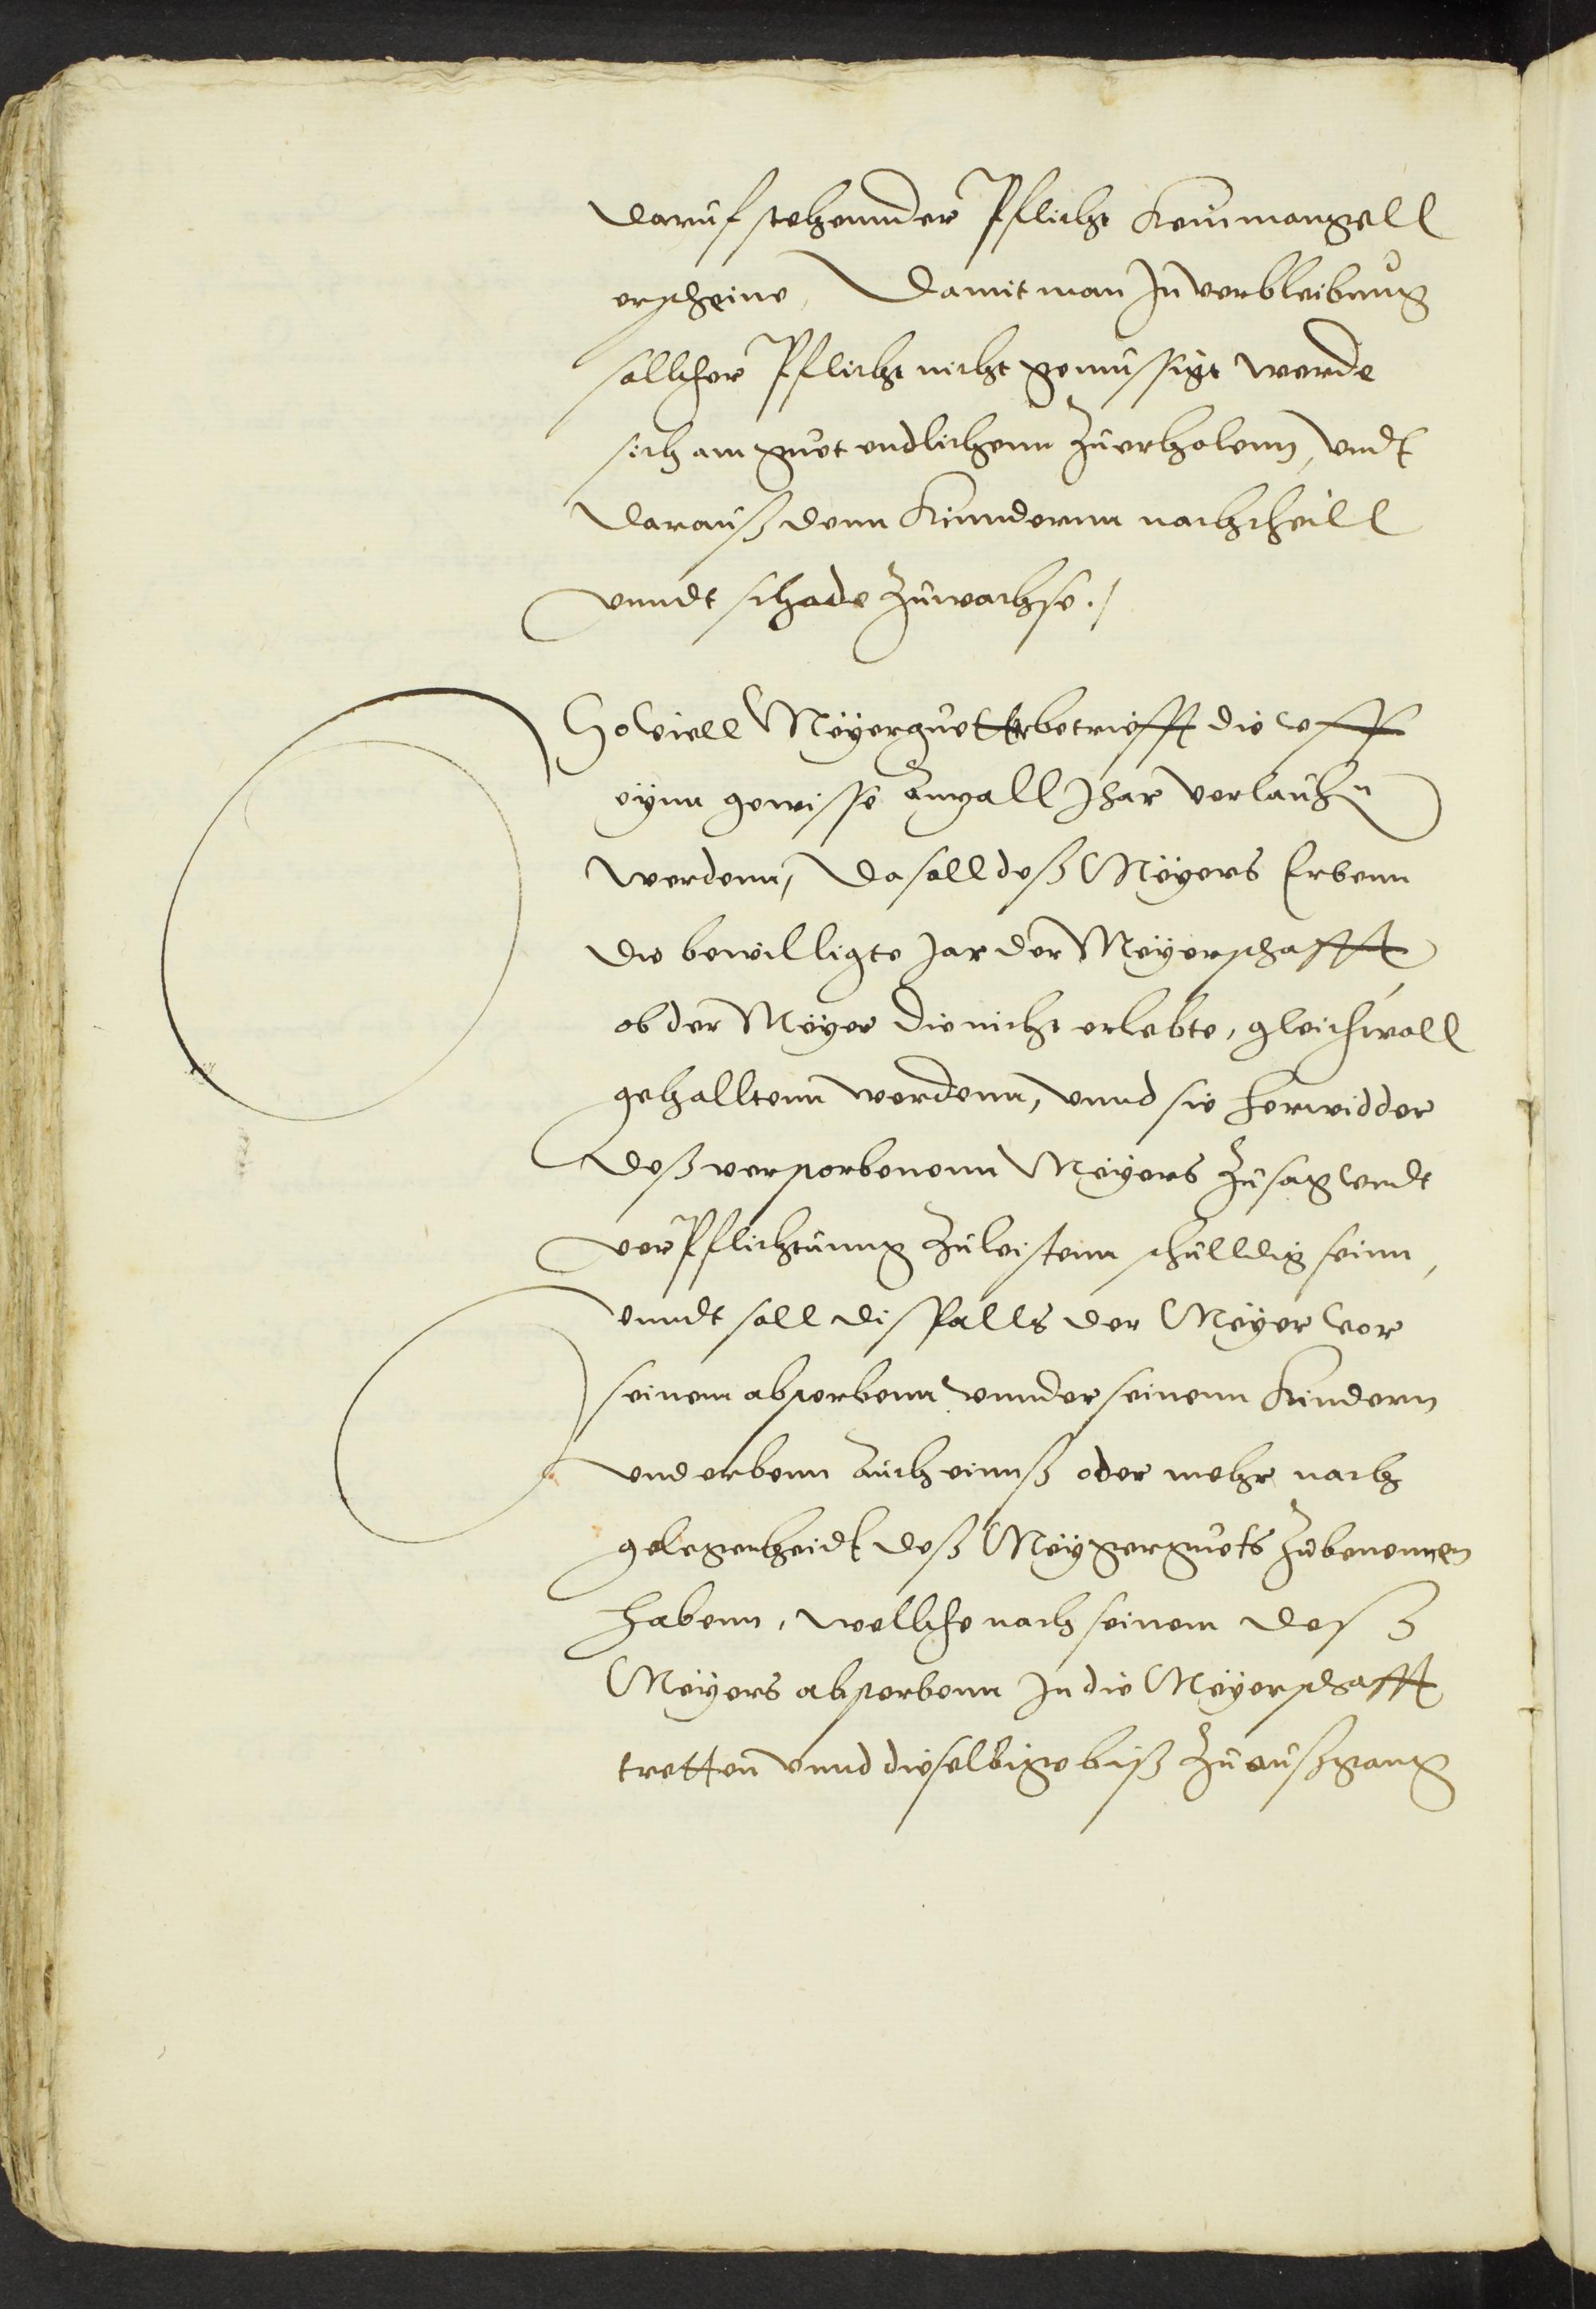 daruf stehennder Pflicht kein mangell
erscheine, Damit man Jn verbleibung
sollcher Pflicht nicht gemüssigt werde
sich am guet endlichenn zuerholenn, vndt
darauß denn Kinndernn nachtheill
vnndt schade zuwachse./
So viell Meyerguetter betriefft die vff
eÿnn gewisse anzall Jhar verlauhen
werdenn, da soll deß Meÿers Erbenn
die bewilligte Jar der Meÿerschafft
ob der Meÿer die nicht erlebte, gleichwoll
gehalltenn werdenn, vnnd sie herwidder
deß verstorbenenn Meÿers zusag vndt
verpflichtunng zuleistenn schülldig seinn,
vnndt soll dißfalls der Meÿer vor
seinem absterbenn vnnder seinenn Kindern
vnd erbenn auch einnß oder mehr nach
gelegenheidt deß Meÿgerguets zubenennen
habenn, wellche nach seinem deß
Meÿers absterbenn Jn die Meÿerschafft
tretten vnnd dieselbige biß zu außgang